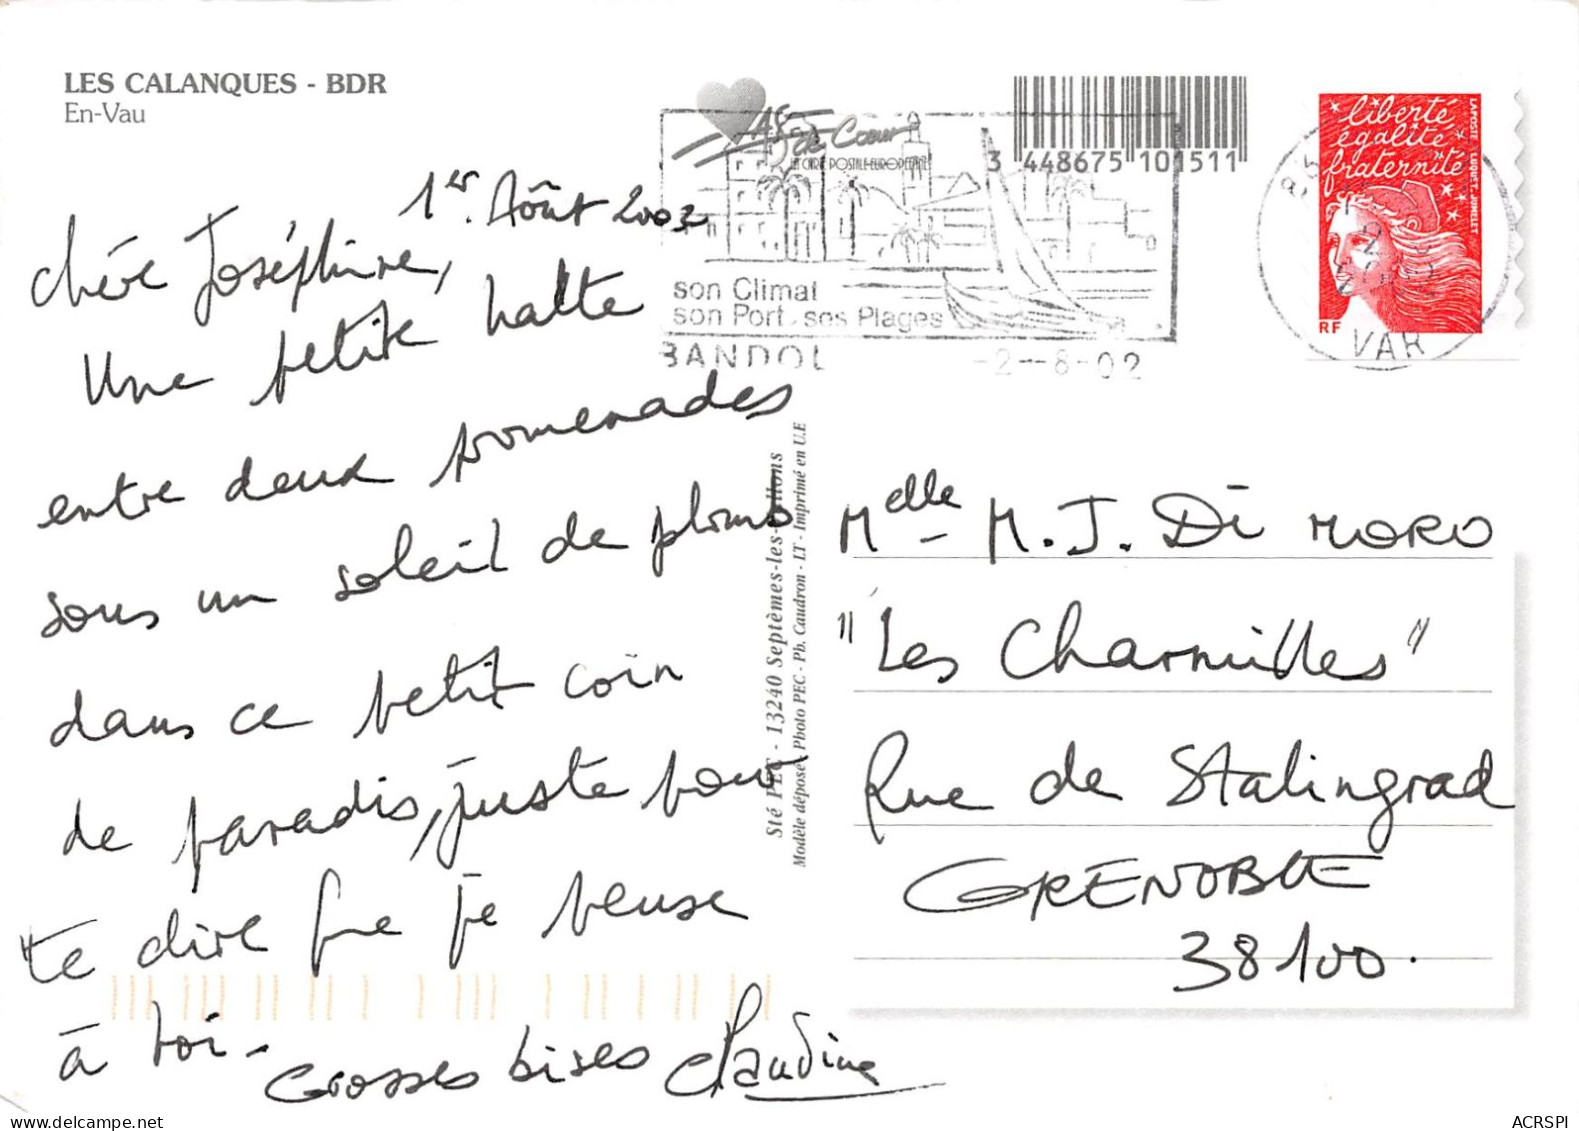 LES CALANQUES - BDR
En-Vau
de Coeur
LA CARTE POSTALE EUROPEENNE
3 448675 101511
son Climat
son Port, ses Plages
BANDOL
-2--8-02
VAR
liberté
égalité
fraternité
LA POSTE LUQUET-JUMELET
RF
1er. Août 2003
chère Joséphine,
Une petite halte
entre deux promenades
sous un soleil de plomb
dans ce petit coin
de paradis, juste pour
te dire que je pense
à toi -
Grosses bises Claudine
Sté PEC - 13240 Septèmes-les-Vallons
Modèle déposé - Photo PEC - Pb. Caudron - LT - Imprimé en U.E
Melle - M. J. Di MORO
"Les Charmilles"
Rue de Stalingrad
GRENOBLE
38100.
ACRSPI